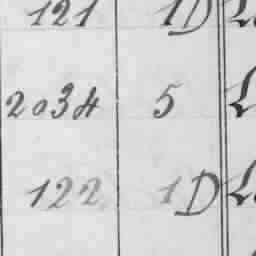 121 1D
2034 5
122 1D